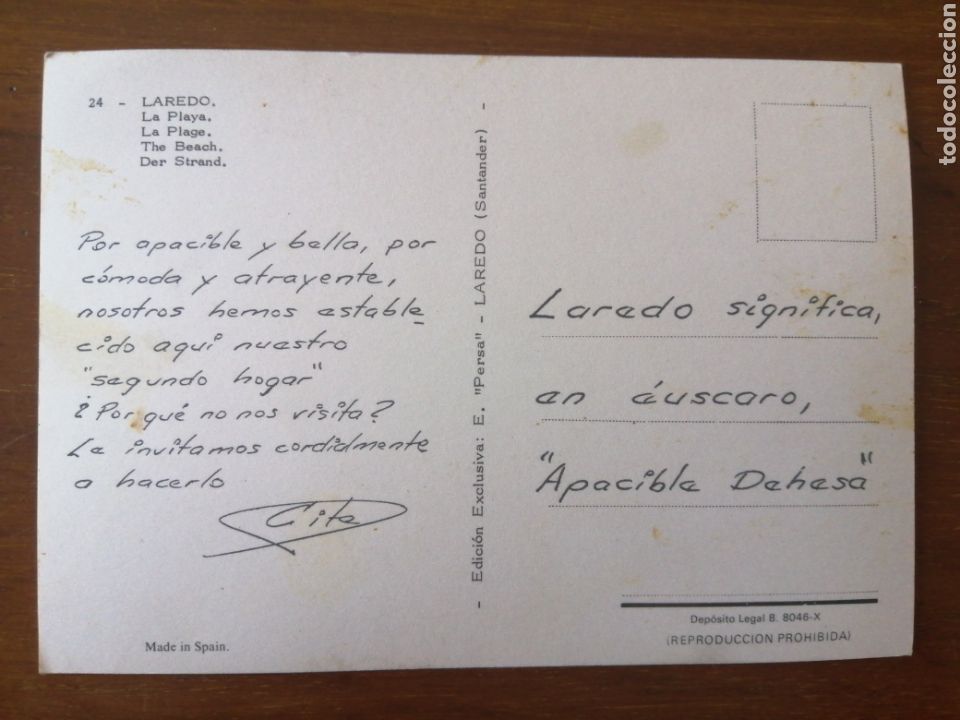 24 - LAREDO.
La Playa.
La Plage.
The Beach.
Der Strand.
Por apacible y bella, por
cómoda y atrayente,
nosotros hemos estable_
cido aquí nuestro
"segundo hogar"
¿Por qué no nos visita?
Le invitamos cordialmente
a hacerlo
Cite
Made in Spain.
- Edición Exclusiva: E. "Persa" - LAREDO (Santander) -
Laredo significa,
en éuscaro,
"Apacible Dehesa"
Depósito Legal B. 8046-X
(REPRODUCCION PROHIBIDA)
todocoleccion